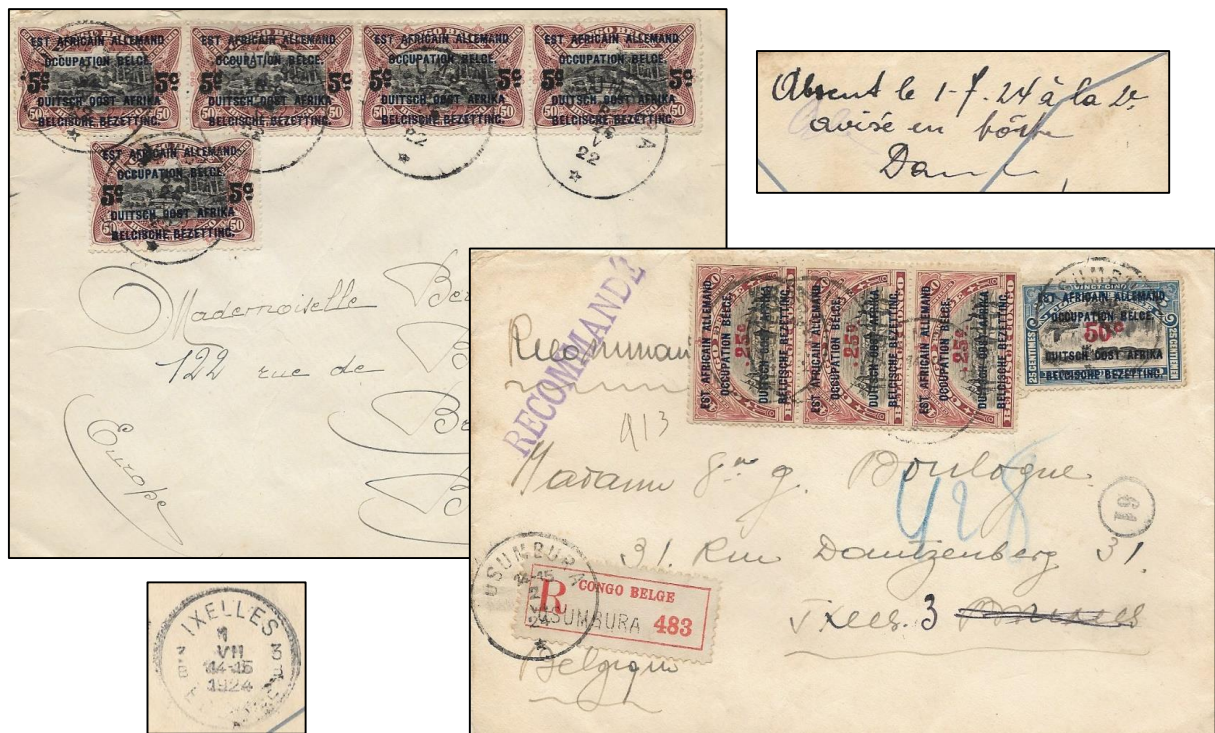 EST AFRICAIN ALLEMAND
OCCUPATION BELGE.
5c 5c
DUITSCH OOST AFRIKA
BELGISCHE BEZETTING.
50 50
EST AFRICAIN ALLEMAND
OCCUPATION BELGE.
5c 5c
DUITSCH OOST AFRIKA
BELGISCHE BEZETTING.
50 50
EST AFRICAIN ALLEMAND
OCCUPATION BELGE.
5c 5c
DUITSCH OOST AFRIKA
BELGISCHE BEZETTING.
50 50
EST AFRICAIN ALLEMAND
OCCUPATION BELGE.
5c 5c
DUITSCH OOST AFRIKA
BELGISCHE BEZETTING.
50 50
22
V
22
EST AFRICAIN ALLEMAND
OCCUPATION BELGE.
5c 5c
DUITSCH OOST AFRIKA
BELGISCHE BEZETTING.
50 50
Mademoiselle
122 rue de
Europe
Absent le 1-7-24 à la 2e
avisé en bôite
RECOMMANDÉ
EST AFRICAIN ALLEMAND
OCCUPATION BELGE.
25c
DUITSCH OOST AFRIKA
BELGISCHE BEZETTING.
EST AFRICAIN ALLEMAND
OCCUPATION BELGE.
25c
DUITSCH OOST AFRIKA
BELGISCHE BEZETTING.
EST AFRICAIN ALLEMAND
OCCUPATION BELGE.
25c
DUITSCH OOST AFRIKA
BELGISCHE BEZETTING.
VINGT-CINQ
EST AFRICAIN ALLEMAND
OCCUPATION BELGE.
50c
DUITSCH OOST AFRIKA
BELGISCHE BEZETTING.
25 CENTIMES
913
Boulogne
428
61
31. Rue Dautzenberg 31.
3
USUMBURA
14-15
24
CONGO BELGE
R
USUMBURA 483
Belgique
IXELLES 3
VII
14-15
1924